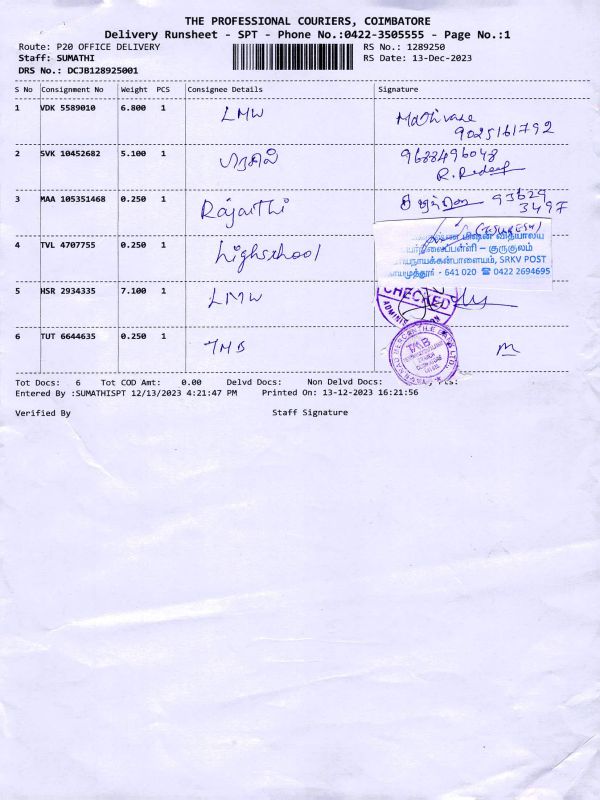 THE PROFESSIONAL COURIERS, COIMBATORE
Delivery Runsheet - SPT - Phone No.:0422-3505555 - Page No.:1
Route: P20 OFFICE DELIVERY RS No.: 1289250
Staff: SUMATHI RS Date: 13-Dec-2023
DRS No.: DCJB128925001
S No Consignment No Weight PCS Consignee Details Signature
1 VDK 5589010 6.800 1 LMW
9025161792
2 SVK 10452682 5.100 1 9688496048
3 MAA 105351468 0.250 1 Rajarthi 93629
3497
(SURESH)
வித்யாலய
– குருகுலம்
SRKV POST
- 641 020 ☎ 0422 2694695
4 TVL 4707755 0.250 1 highschool
5 HSR 2934335 7.100 1 LMW
CHECKED
6 TUT 6644635 0.250 1 TMB
TMB
Tot Docs: 6 Tot COD Amt: 0.00 Delvd Docs: Non Delvd Docs:
Entered By :SUMATHISPT 12/13/2023 4:21:47 PM Printed On: 13-12-2023 16:21:56
Verified By Staff Signature